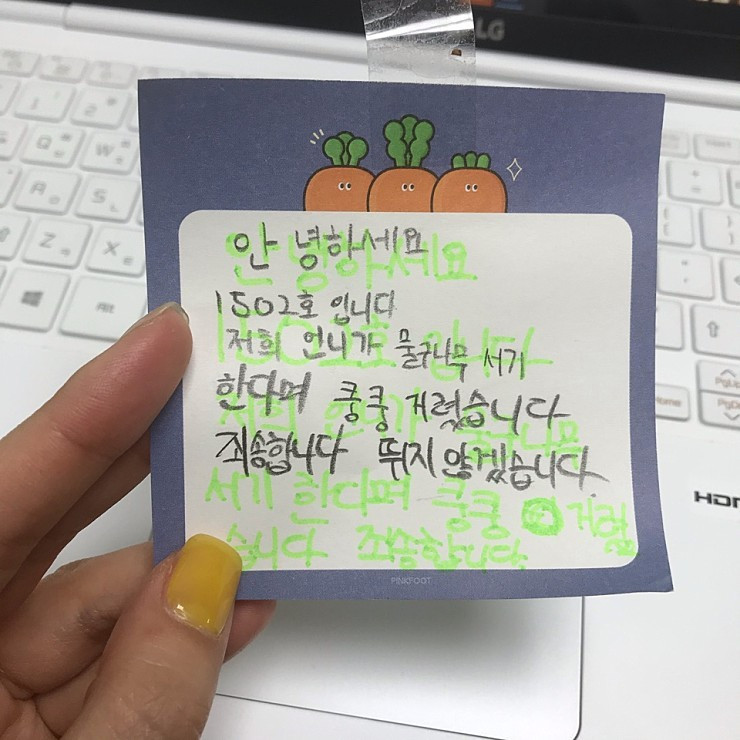 LG
안녕하세요
1502호 입니다
저희 언니가 물구나무 서기
한다며 쿵쿵 거렸습니다
죄송합니다 뛰지 않겠습니다.
안녕하세요
1502호 입니다
저희 언니가 물구나무
서기 한다며 쿵쿵 거렸
습니다 죄송합니다
PINKFOOT
HDMI
Home
PgUp
PgDn
Alt
Q
W
A
S
Z
X